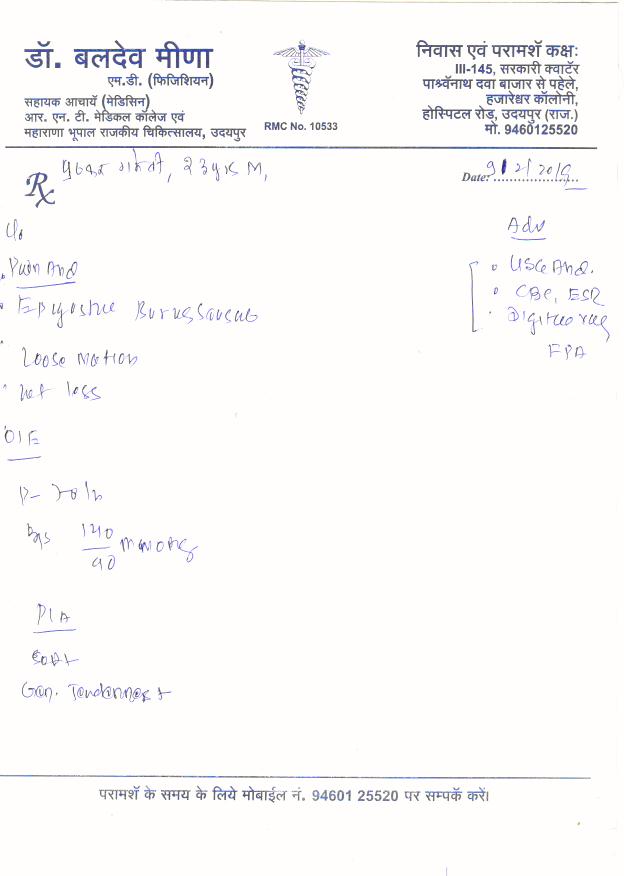 डॉ. बलदेव मीणा
एम.डी. (फिजिशियन)
सहायक आचार्य (मेडिसिन)
आर. एन. टी. मेडिकल कॉलेज एवं
महाराणा भूपाल राजकीय चिकित्सालय, उदयपुर
RMC No. 10533
निवास एवं परामर्श कक्षः
III-145, सरकारी क्वार्टर
पार्श्वनाथ दवा बाजार से पहेले,
हजारेश्वर कॉलोनी,
होस्पिटल रोड़, उदयपुर (राज.)
मो. 9460125520
23 yrs M,
Rx
Date: 9/2/2019
C/o
Pain Abd
Loose motion
wt loss
O/E
P- 70/m
140/90 mmOHg
P/A
Soft
Gen. Tenderness +
Adv
USG Abd.
CBC, ESR
FPA
परामर्श के समय के लिये मोबाईल नं. 94601 25520 पर सम्पर्क करें।